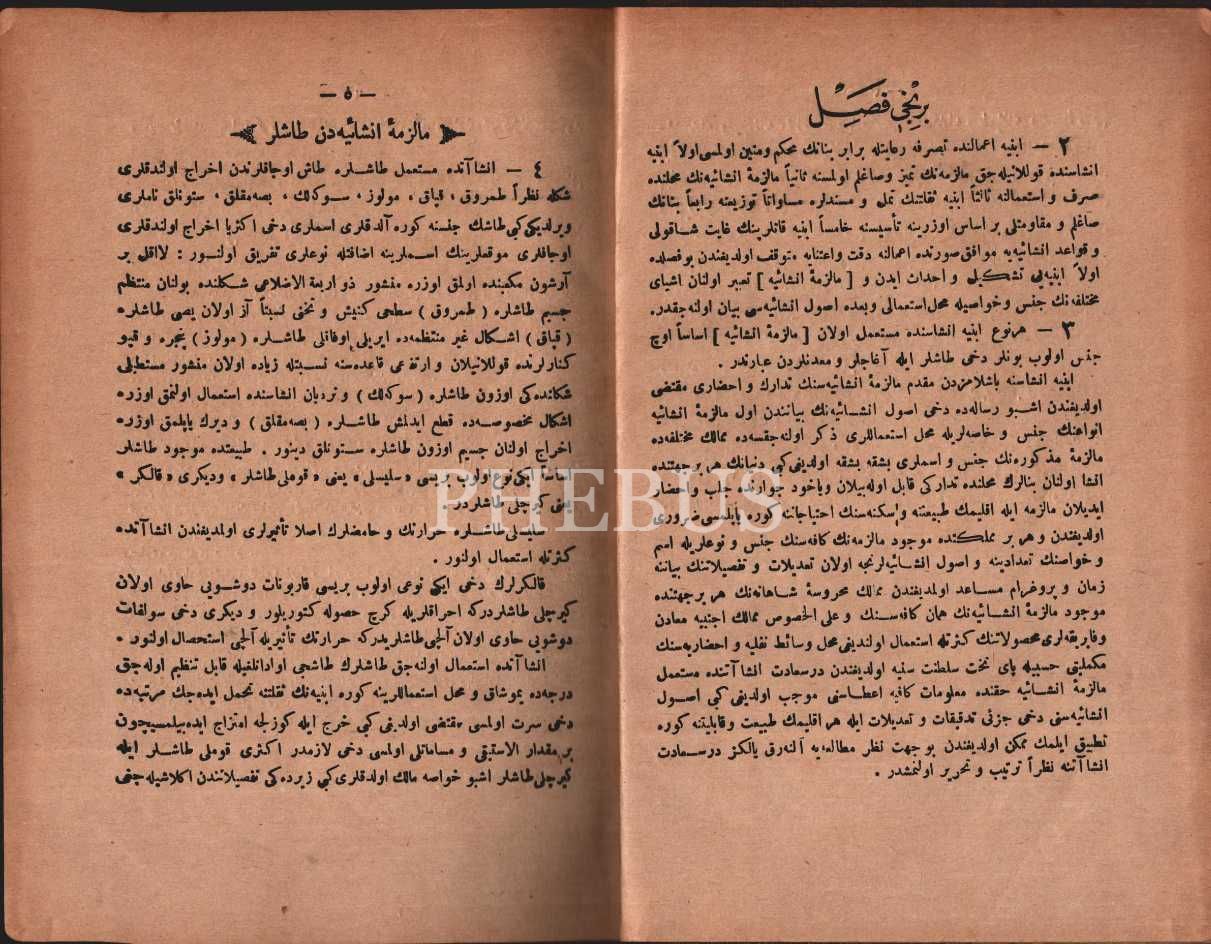 برنجی فصل
٢ — ابنیه اعمالنده تصرفه رعایتله برابر بنانك محکم ومتین اولمسی اولاً ابنیه
انشاسنده قوللانیله‌جق مالزمه‌نك تمیز وصاغلم اولمسنه ثانیاً مالزمهٔ انشائیه‌نك محلنده
صرف و استعمالنه ثالثاً ابنیه ثقلتنك تمل و مسندلره مساواتاً توزیعنه رابعاً بنانك
صاغلم و مقاومتلی بر اساس اوزرینه تأسیسنه خامساً ابنیه قاتلرینك غایت شاقولی
و قواعد انشائیه‌یه موافق صورتده اعمالنه دقت واعتنایه متوقف اولدیغندن بو فصلده
اولاً ابنیه‌یی تشکیل و احداث ایدن و [ مالزمهٔ انشائیه ] تعبیر اولنان اشیای
مختلفه‌نك جنس وخواصیله محل استعمالی وبعده اصول انشائیه‌سی بیان اوله‌جقدر.
٣ — هرنوع ابنیه انشاسنده مستعمل اولان [ مالزمهٔ انشائیه ] اساساً اوچ
جنس اولوب بونلر دخی طاشلر ایله آغاجلر و معدنلردن عبارتدر .
ابنیه انشاسنه باشلامزدن مقدم مالزمهٔ انشائیه‌سنك تدارك و احضاری مقتضی
اولدیغندن اشبو رساله‌ده دخی اصول انشائیه‌نك بیانندن اول مالزمهٔ انشائیه
انواعنك جنس و خاصه‌لریله محل استعماللری ذکر اوله‌جقسه‌ده ممالك مختلفه‌ده
مالزمهٔ مذکوره‌نك جنس و اسملری بشقه بشقه اولدیغی کبی دنیانك هر برجهتنده
انشا اولنان بنالرك محلنده تدارکی قابل اوله‌بیلان ویاخود جوارنده جلب واحضار
ایدیلان مالزمه ایله اقلیمك طبیعتنه واسکنه‌سنك احتیاجاتنه کوره یاپلمسی ضروری
اولدیغندن و هر بر مملکتده موجود مالزمه‌نك کافه‌سنك جنس و نوعلریله اسم
و خواصنك تعدادینه و اصول انشائیه‌لرنجه اولان تعدیلات و تفصیلاتنك بیاننه
زمان و پروغرام مساعد اولمدیغندن ممالك محروسهٔ شاهانه‌نك هر برجهتنده
موجود مالزمهٔ انشائیه‌نك همان کافه‌سنك و علی الخصوص ممالك اجنبیه معادن
وفابریقه‌لری محصولاتنك کثرتله استعمال اولندیغی محل وسائط نقلیه و احضاریه‌سنك
مکملیتی حسبیله پای تخت سلطنت سنیه اولدیغندن درسعادت انشاآتنده مستعمل
مالزمهٔ انشائیه حقنده معلومات کافیه اعطاسنی موجب اولدیغی کبی اصول
انشائیه‌سنی دخی جزئی تدقیقات و تعدیلات ایله هر اقلیمك طبیعت وقابلیتنه کوره
تطبیق ایلمك ممکن اولدیغندن بوجهت نظر مطالعه‌یه آلنه‌رق یالکز درسعادت
انشاآتنه نظراً ترتیب و تحریر اولنمشدر .
— ٥ —
مالزمهٔ انشائیه‌دن طاشلر
٤ — انشاآتده مستعمل طاشلره طاش اوجاقلرندن اخراج اولندقلری
شکله نظراً طمروق ، قپاق ، مولوز ، سوکه‌لك ، بصه‌مقلق ، ستونلق ناملری
ویرلدیکی کبی طاشك جلسنه کوره آلدقلری اسملری دخی اکثریا اخراج اولندقلری
اوجاقلری موقعلرینك اسملرینه اضافتله نوعلری تفریق اولنور : لااقل بر
آرشون مکعبنده اولمق اوزره منشور ذو اربعة الاضلاعی شکلنده بولنان منتظم
جسیم طاشلره ( طمروق ) سطحی کنیش و تخنی نسبتاً آز اولان یصی طاشلره
( قپاق ) اشکال غیر منتظمه‌ده ایریلی اوفاقلی طاشلره ( مولوز ) پنجره و قپو
کنارلرنده قوللانیلان و ارتفاعی قاعده‌سنه نسبتله زیاده اولان منشور مستطیلی
شکلنده‌کی اوزون طاشلره ( سوکه‌لك ) و نردبان انشاسنده استعمال اولنمق اوزره
اشکال مخصوصه‌ده قطع ایدلمش طاشلره ( بصه‌مقلق ) و دیرك یاپلمق اوزره
اخراج اولنان جسیم اوزون طاشلره ستونلق دینور . طبیعتده موجود طاشلر
اساساً ایکی نوع اولوب بریسی « سلیسلی » یعنی « قوملی طاشلر » ودیکری « قالکر »
یعنی کیرچلی طاشلردر .
سلیسلی طاشلره حرارتك و حامضلرك اصلا تأثیرلری اولمدیغندن انشاآتده
کثرتله استعمال اولنور .
قالکرلرك دخی ایکی نوعی اولوب بریسی قاربونات دوشویی حاوی اولان
کیرچلی طاشلردرکه احراقلریله کرچ حصوله کتوریلور و دیکری دخی سولفات
دوشویی حاوی اولان آلچی طاشلریدرکه حرارتك تأثیریله آلچی استحصال اولنور .
انشاآتده استعمال اوله‌جق طاشلرك طاشجی اوادانلغیله قابل تنظیم اوله‌جق
درجه‌ده یموشاق و محل استعماللرینه کوره ابنیه‌نك ثقلتنه تحمل ایده‌جك مرتبه‌ده
دخی سرت اولمسی مقتضی اولدیغی کبی خرج ایله کوزلجه امتزاج ایده‌بیلمسیچون
بر مقدار الاستیقی و مساماتلی اولمسی دخی لازمدر اکثری قوملی طاشلر ایله
کیرچلی طاشلر اشبو خواصه مالك اولدقلری کبی زیرده‌کی تفصیلاتندن اکلاشیله‌جغی
PHEBUS